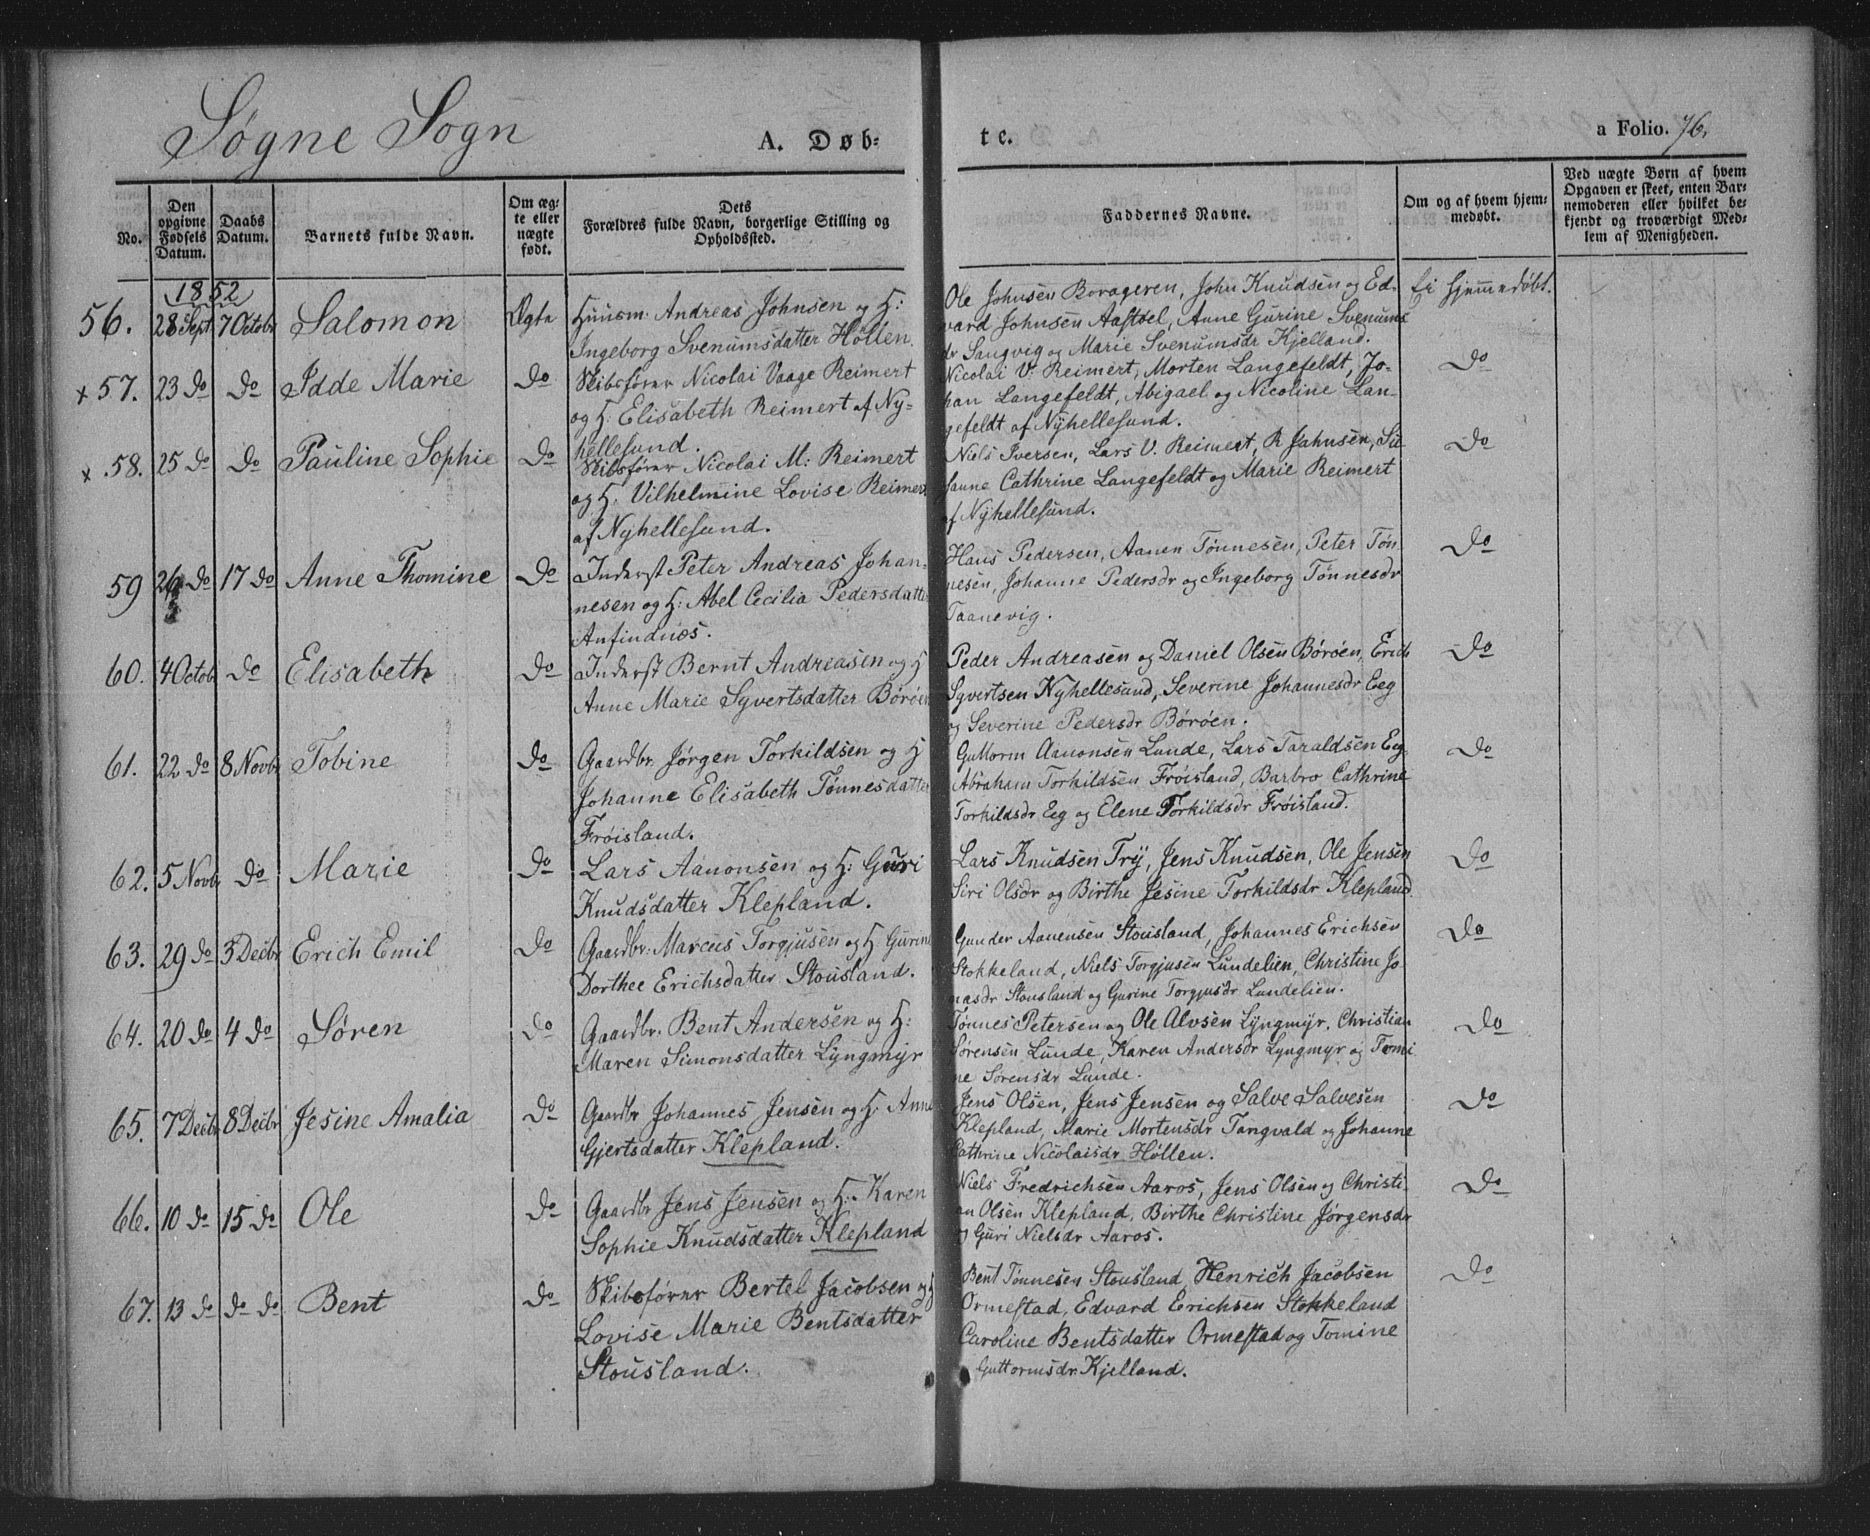 Søgne Sogn
A. Døb-
te.
a Folio. 76.
No.
Den opgivne Fødsels Datum.
Daabs Datum.
Barnets fulde Navn.
Om ægte eller nægte født.
Dets Forældres fulde Navn, borgerlige Stilling og Opholdssted.
Faddernes Navne.
Om og af hvem hjemmedøbt.
Ved nægte Børn af hvem Opgaven er skeet, enten Barnemoderen eller hvilket bekjendt og troværdigt Medlem af Menigheden.
1852
56. 28 Sept 7 Octobr Salomon Ægte
Huusm. Andreas Johnsen og H:
Ingeborg Svenumsdatter Höllen.
Ole Johnsen Borageren, John Knudsen og Ed-
vard Johnsen Aastöel, Anne Gurine Svenums
dr Sangvig og Marie Svenumsdr Kjelland.
Ei hjemmedøbt.
x 57. 23 do do Idde Marie do
Skibsfører Nicolai Vaage Reimert
og H. Elisabeth Reimert af Ny-
hellesund.
Nicolai V. Reimert, Morten Langefeldt, Jo-
han Langefeldt, Abigael og Nicoline Lan-
gefeldt af Nyhellesund.
do
x 58. 25 do do Pauline Sophie do
Skibsfører Nicolai M: Reimert
og H. Vilhelmine Lovise Reimert
af Nyhellesund.
Niels Iversen, Lars V. Reimert, R Jahnsen, Su
sanne Cathrine Langefeldt og Marie Reimert
af Nyhellesund.
do
59 26 do 17 do Anne Thomine do
Inderst Peter Andreas Johan-
nesen og H: Abel Cecilia Pedersdatter
Anfindnæs.
Hans Pedersen, Aanen Tønnesen, Peter Tøn
nesen, Johanne Pedersdr og Ingeborg Tønnesdr
Taanevig.
do
60. 4 Octob do Elisabeth do
Inderst Bernt Andreasen og H
Anne Marie Syvertsdatter Børøen
Peder Andreasen og Daniel Olsen Børøen, Erich
Syvertsen Nyhellesund, Severine Johannesdr Eeg
og Severine Pedersdr Børøen.
do
61. 22 do 8 Novbr Tobine do
Gaardbr. Jørgen Torkildsen og H
Johanne Elisabeth Tønnesdatter
Frøisland.
Guttorm Aanonsen Lunde, Lars Taraldsen Eeg
Abraham Torkildsen Frøisland, Barbro Cathrine
Torkildsdr Eeg og Elene Torkildsdr Frøisland.
do
62. 5 Novbr do Marie do
Lars Aanonsen og H: Guri
Knudsdatter Klepland.
Lars Knudsen Try, Jens Knudsen, Ole Jensen
Siri Olsdr og Birthe Jesine Torkildsdr Klepland
do
63. 29 do 3 Decbr Erich Emil do
Gaardbr. Marcus Torgjusen og H Gurine
Dorthee Erichsdatter Stousland.
Gunder Aanensen Stousland, Johannes Erichsen
Stokkeland, Niels Torgjusen Lundelien, Christine Jo-
nasdr Stousland og Gurine Torgjusdr Lundelien.
do
64. 20 do 4 do Søren do
Gaardbr. Bent Andersen og H:
Maren Simonsdatter Lyngmyr
Tønnes Petersen og Ole Alvsen Lyngmyr, Christian
Sørensen Lunde, Karen Andersdr Lyngmyr og Tomi
ne Sørensdr Lunde.
do
65. 7 Decbr 8 Decbr Jesine Amalia do
Gaardbr Johannes Jensen og H. Anne
Gjertsdatter Klepland.
Jens Olsen, Jens Jensen og Salve Salvesen
Klepland, Marie Mortensdr Tangvald og Johanne
Cathrine Nicolaisdr Höllen.
do
66. 10 do 15 do Ole do
Gaardbr Jens Jensen og H: Karen
Sophie Knudsdatter Klepland
Niels Fredrichsen Aaros, Jens Olsen og Christi-
an Olsen Klepland, Birthe Christine Jørgensdr
og Guri Nielsdr Aaros.
do
67. 13 do do do Bent do
Skibsfører Bertel Jacobsen og H
Lovise Marie Bentsdatter
Stousland.
Bent Tønnesen Stousland, Henrich Jacobsen
Ormestad, Edvard Erichsen Stokkeland
Caroline Bentsdatter Ormestad og Tomine
Guttormsdr Kjelland.
do